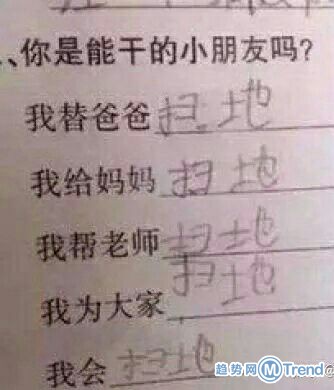 、你是能干的小朋友吗?
我替爸爸扫地
我给妈妈扫地
我帮老师扫地
我为大家扫地
我会扫地
趋势网 MTrend